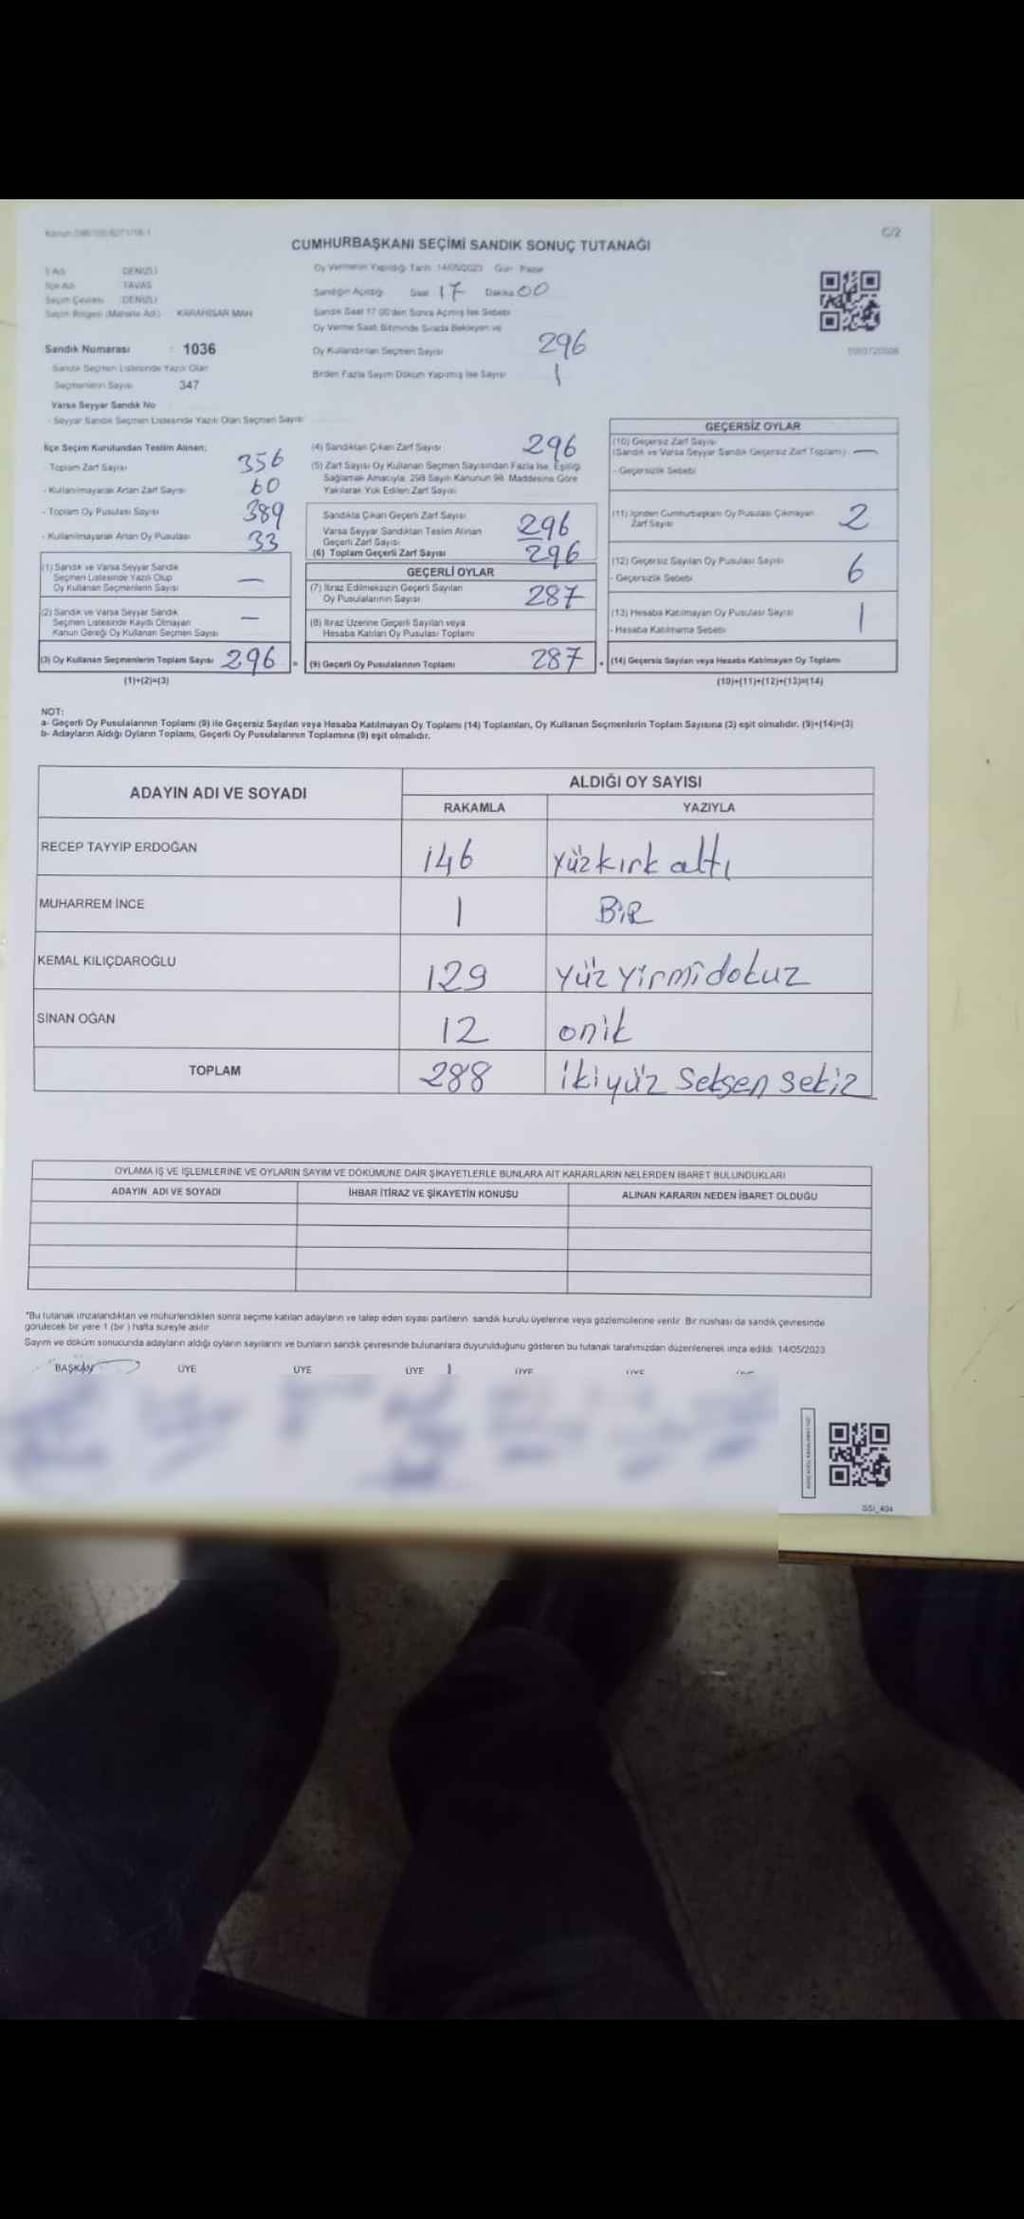 C/2
CUMHURBAŞKANI SEÇİMİ SANDIK SONUÇ TUTANAĞI
İl Adı DENİZLİ
İlçe Adı TAVAS
Seçim Çevresi DENİZLİ
Seçim Bölgesi (Mahalle Adı) KARAHİSAR MAH
Oy Vermenin Yapıldığı Tarih 14/05/2023 Gün Pazar
Sandığın Açıldığı Saat 17 Dakika 00
Sandık Saat 17.00'den Sonra Açılmış İse Sebebi
Oy Verme Saati Bitiminde Sırada Bekleyen ve
Oy Kullandırılan Seçmen Sayısı 296
Birden Fazla Sayım Döküm Yapılmış İse Sayısı 1
Sandık Numarası : 1036
Sandık Seçmen Listesinde Yazılı Olan
Seçmenlerin Sayısı 347
Varsa Seyyar Sandık No
- Seyyar Sandık Seçmen Listesinde Yazılı Olan Seçmen Sayısı
İlçe Seçim Kurulundan Teslim Alınan;
- Toplam Zarf Sayısı 356
- Kullanılmayarak Artan Zarf Sayısı 60
- Toplam Oy Pusulası Sayısı 389
- Kullanılmayarak Artan Oy Pusulası 33
(1) Sandık ve Varsa Seyyar Sandık
Seçmen Listesinde Yazılı Olup
Oy Kullanan Seçmenlerin Sayısı —
(2) Sandık ve Varsa Seyyar Sandık
Seçmen Listesinde Kaydı Olmayan
Kanun Gereği Oy Kullanan Seçmen Sayısı —
(3) Oy Kullanan Seçmenlerin Toplam Sayısı 296
(1)+(2)=(3)
(4) Sandıktan Çıkan Zarf Sayısı 296
(5) Zarf Sayısı Oy Kullanan Seçmen Sayısından Fazla İse, Eşitliği
Sağlamak Amacıyla, 298 Sayılı Kanunun 98. Maddesine Göre
Yakılarak Yok Edilen Zarf Sayısı
Sandıkta Çıkan Geçerli Zarf Sayısı 296
Varsa Seyyar Sandıktan Teslim Alınan
Geçerli Zarf Sayısı
(6) Toplam Geçerli Zarf Sayısı 296
GEÇERLİ OYLAR
(7) İtiraz Edilmeksizin Geçerli Sayılan
Oy Pusulalarının Sayısı 287
(8) İtiraz Üzerine Geçerli Sayılan veya
Hesaba Katılan Oy Pusulası Toplamı
(9) Geçerli Oy Pusulalarının Toplamı 287
GEÇERSİZ OYLAR
(10) Geçersiz Zarf Sayısı
(Sandık ve Varsa Seyyar Sandık Geçersiz Zarf Toplamı) —
- Geçersizlik Sebebi
(11) İçinden Cumhurbaşkanı Oy Pusulası Çıkmayan
Zarf Sayısı 2
(12) Geçersiz Sayılan Oy Pusulası Sayısı 6
- Geçersizlik Sebebi
(13) Hesaba Katılmayan Oy Pusulası Sayısı 1
- Hesaba Katılmama Sebebi
(14) Geçersiz Sayılan veya Hesaba Katılmayan Oy Toplamı
(10)+(11)+(12)+(13)=(14)
NOT:
a- Geçerli Oy Pusulalarının Toplamı (9) ile Geçersiz Sayılan veya Hesaba Katılmayan Oy Toplamı (14) Toplamları, Oy Kullanan Seçmenlerin Toplam Sayısına (3) eşit olmalıdır. (9)+(14)=(3)
b- Adayların Aldığı Oyların Toplamı, Geçerli Oy Pusulalarının Toplamına (9) eşit olmalıdır.
ADAYIN ADI VE SOYADI
ALDIĞI OY SAYISI
RAKAMLA YAZIYLA
RECEP TAYYİP ERDOĞAN 146 yüzkırk altı
MUHARREM İNCE 1 BİR
KEMAL KILIÇDAROĞLU 129 yüz yirmi dokuz
SİNAN OĞAN 12 onik
TOPLAM 288 ikiyüz seksen sekiz
OYLAMA İŞ VE İŞLEMLERİNE VE OYLARIN SAYIM VE DÖKÜMÜNE DAİR ŞİKAYETLERLE BUNLARA AİT KARARLARIN NELERDEN İBARET BULUNDUKLARI
ADAYIN ADI VE SOYADI İHBAR İTİRAZ VE ŞİKAYETİN KONUSU ALINAN KARARIN NEDEN İBARET OLDUĞU
*Bu tutanak imzalandıktan ve mühürlendikten sonra seçime katılan adayların ve talep eden siyasi partilerin sandık kurulu üyelerine veya gözlemcilerine verilir. Bir nüshası da sandık çevresinde
görülecek bir yere 1 (bir) hafta süreyle asılır
Sayım ve döküm sonucunda adayların aldığı oyların sayılarını ve bunların sandık çevresinde bulunanlara duyurulduğunu gösteren bu tutanak tarafımızdan düzenlenerek imza edildi. 14/05/2023
BAŞKAN ÜYE ÜYE ÜYE ÜYE ÜYE